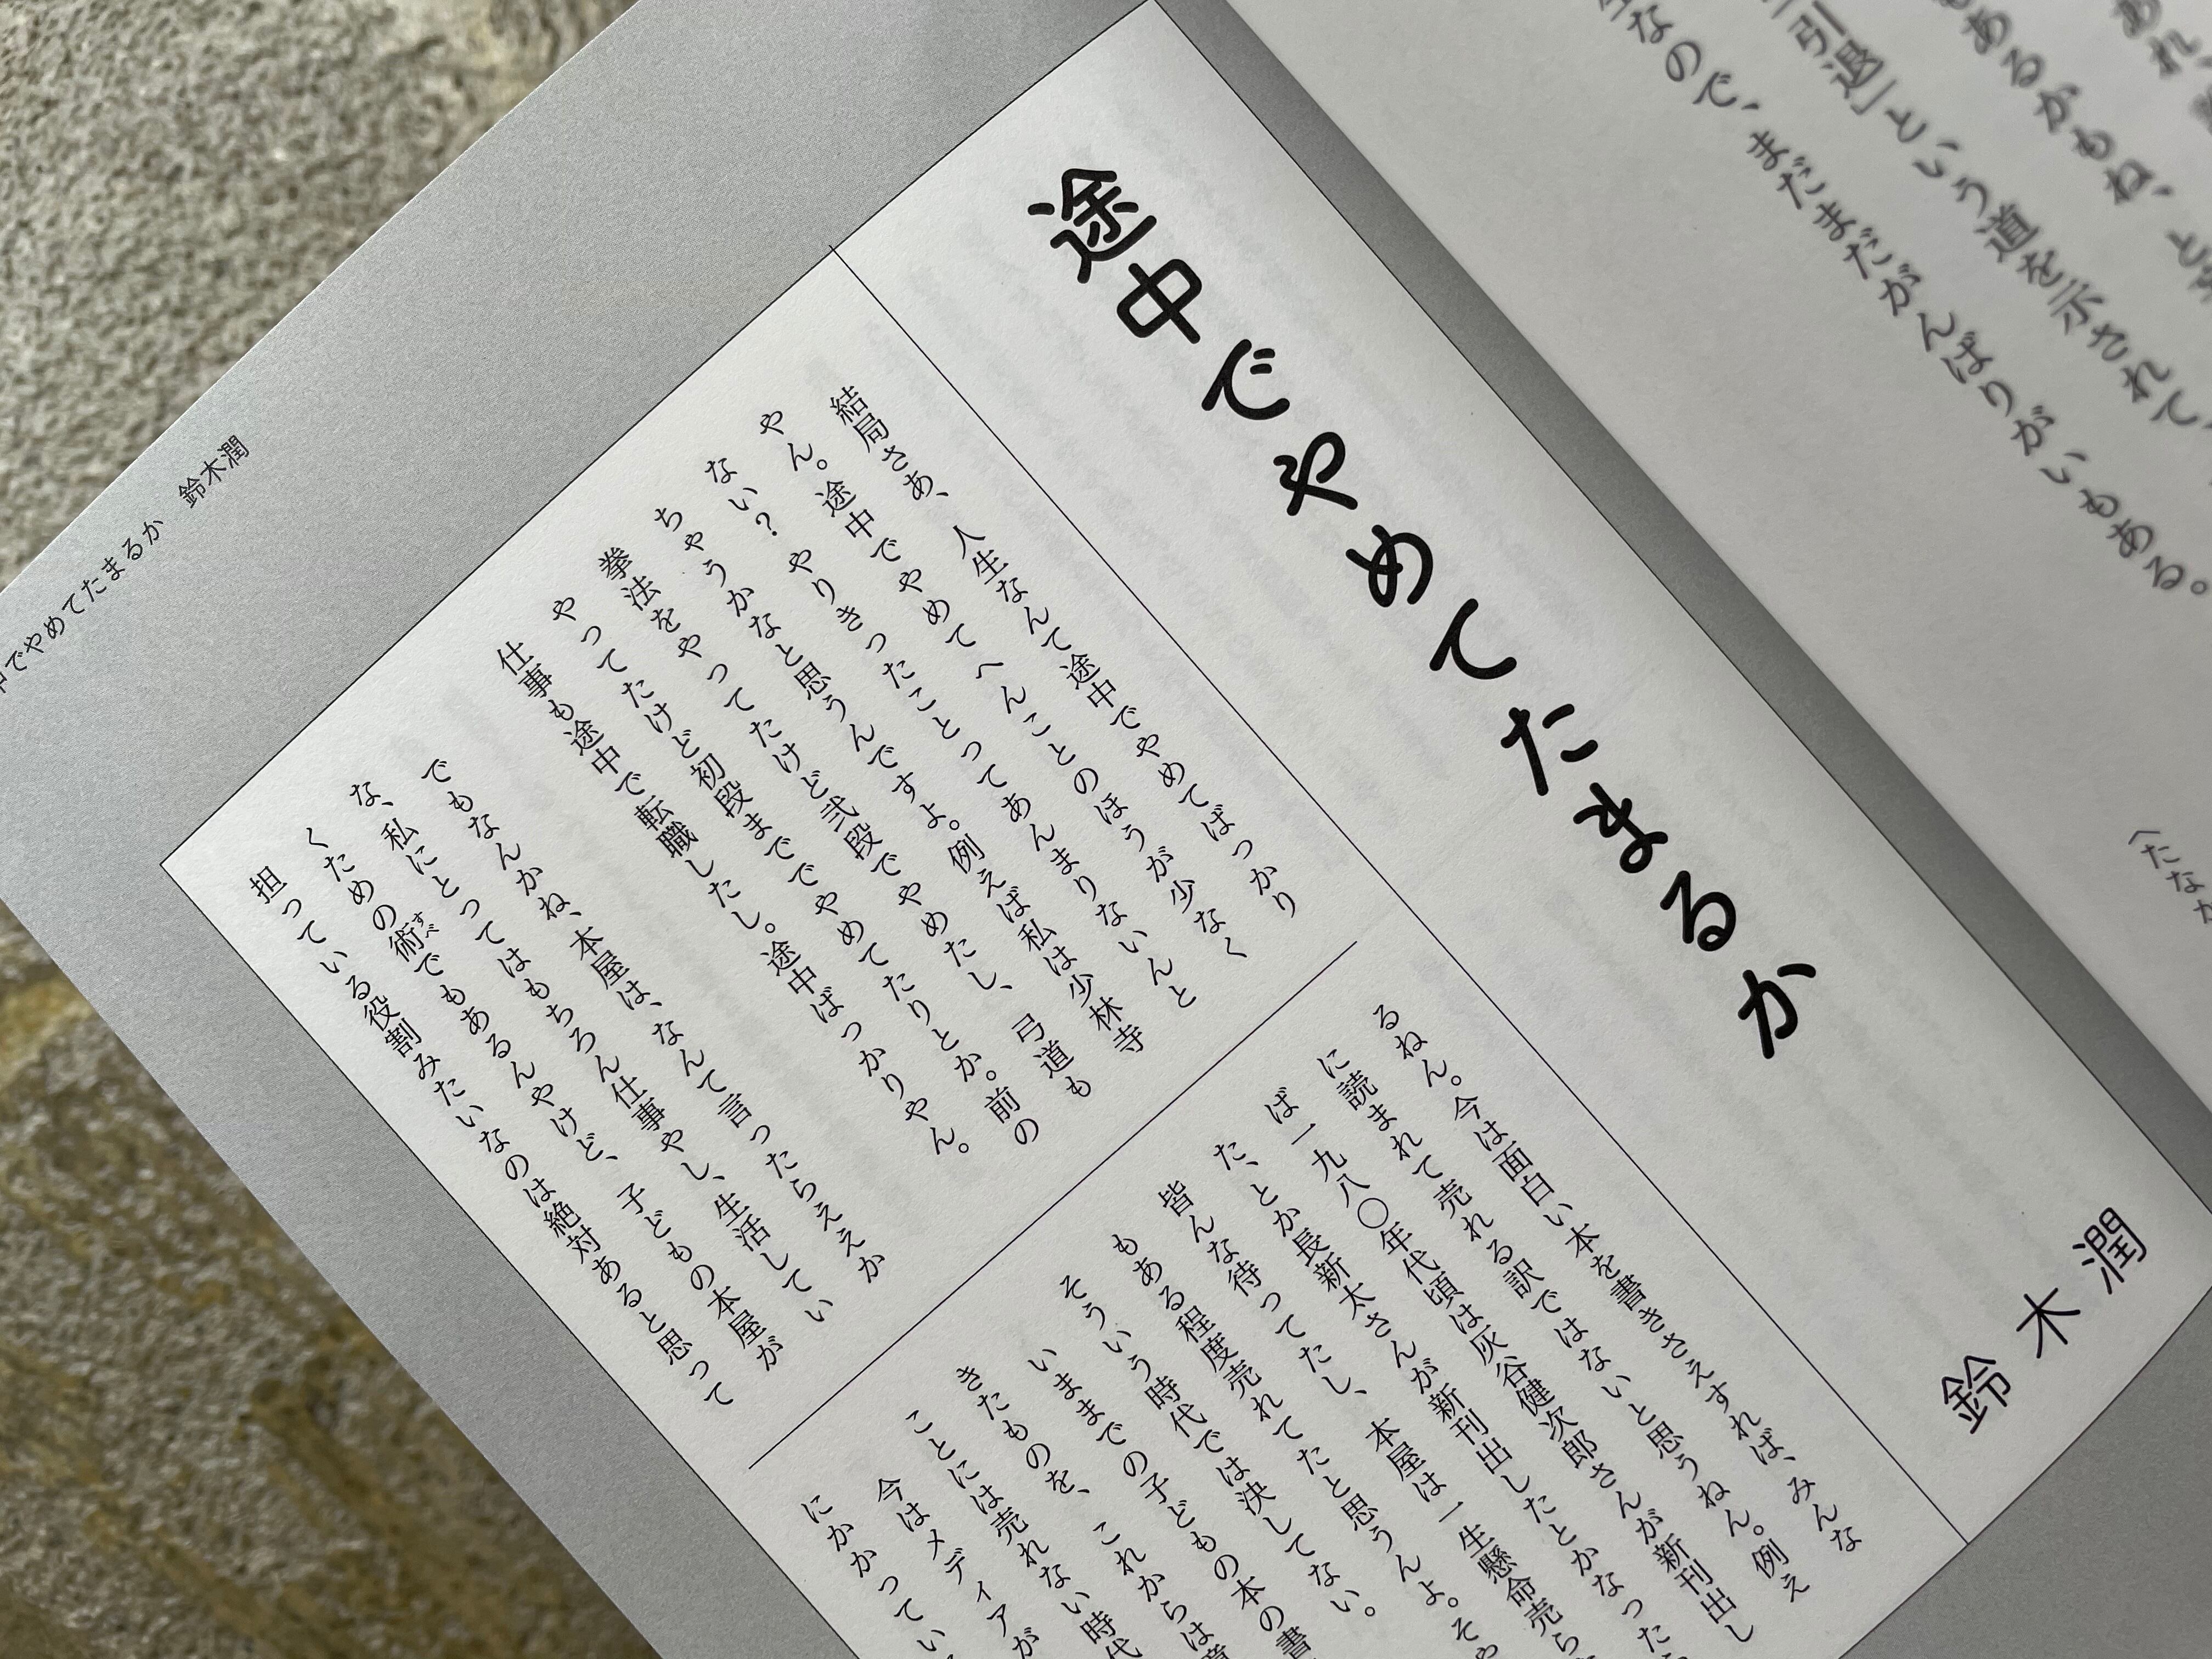 なので、まだまだがんばりがいもある。
途中でやめてたまるか
鈴木潤
結局さあ、人生なんて途中でやめてばっかり
やん。途中でやめてへんことのほうが少なく
ない？　やりきったことってあんまりないんと
ちゃうかなと思うんですよ。例えば私は少林寺
拳法をやってたけど弐段でやめたし、弓道も
やってたけど初段まででやめてたりとか。前の
仕事も途中で転職したし。途中ばっかりやん。
でもなんかね、本屋は、なんて言ったらええか
な、私にとってはもちろん仕事やし、生活してい
くための術でもあるんやけど、子どもの本屋が
すべ
担っている役割みたいなのは絶対あると思って
るねん。今は面白い本を書きさえすれば、みんな
に読まれて売れる訳ではないと思うねん。例え
ば一九八〇年代頃は灰谷健次郎さんが新刊出し
た、とか長新太さんが新刊出したとかなった
皆んな待ってたし、本屋は一生懸命売ら
もある程度売れてたと思うんよ。そ
そういう時代では決してない。
いままでの子どもの本の書
きたものを、これからは
ことには売れない時代
今はメディアが
にかかってい
でやめてたまるか　鈴木潤